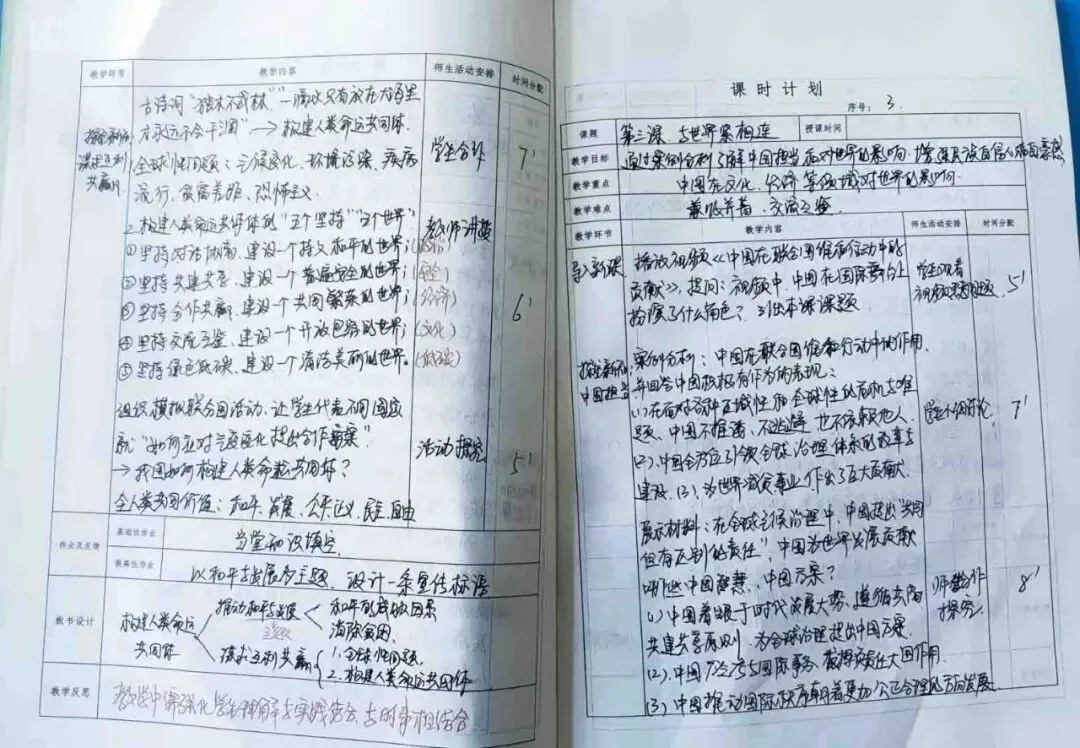 教学环节 教学内容 师生活动安排 时间分配
古诗词"独木不成林""一滴水只有放在大海里
才永远不会干涸"→构建人类命运共同体.
探究新知
谋求互利
共赢
1.全球性问题:气候变化、环境污染、疾病
流行、贫富差距、恐怖主义.
学生合作 7'
2.构建人类命运共同体的"五个坚持""五个世界"
教师讲授
①坚持对话协商、建设一个持久和平的世界;(政治)
②坚持共建共享、建设一个普遍安全的世界;(安全)
③坚持合作共赢、建设一个共同繁荣的世界;(经济)
6'
④坚持交流互鉴、建设一个开放包容的世界;(文化)
⑤坚持绿色低碳、建设一个清洁美丽的世界。(低碳)
组织模拟联合国活动、让学生代表不同国家
就"如何应对气候变化提出合作方案"
活动探究 5'
→我国如何构建人类命运共同体?
全人类共同价值:和平、发展、公平、正义、民主、自由
作业及反馈
基础性作业 当堂知识填空.
提高性作业 以和平与发展为主题、设计一条宣传标语
板书设计
构建人类命运
共同体
推动和平与发展
和平的威胁因素
消除贫困.
谋求互利共赢
1.全球性问题.
2.构建人类命运共同体
教学反思 教学中需强化学生理解与实践结合、与时事相结合
课时计划
序号: 3.
课题 第三课 与世界紧相连 授课时间
教学目标 通过案例分析了解中国担当和对世界的影响、增强民族自信心和自豪感
教学重点 中国在文化、经济等领域对世界的影响.
教学难点 兼收并蓄、交流互鉴.
教学环节 教学内容 师生活动安排 时间分配
导入新课 播放视频《中国在联合国维和行动中的
贡献》、提问:视频中、中国在国际舞台上
扮演了什么角色?引出本课课题
学生观看
视频思考问题 5'
探究新知
中国担当
案例分析:中国在联合国维和行动中的作用、
并回答中国积极有作为的表现:
(1)在面对各种区域性和全球性的危机与难
题、中国不推诿、不逃避、也不依赖他人.
(2).中国全方位引领全球治理体系的改革与
建设.(3)、为世界减贫事业作出了巨大贡献.
学生小组讨论. 7'
展示材料:在全球气候治理中、中国提出"共同
但有区别的责任"、中国为世界发展贡献
哪些中国智慧、中国方案?
(1)中国着眼于时代发展大势、遵循共商
共建共享原则、为全球治理提出中国方案.
(2).中国全方位参与国际事务、发挥负责任大国作用.
(3)中国推动国际秩序朝着更加公正合理的方向发展.
师生合作
探究. 8'